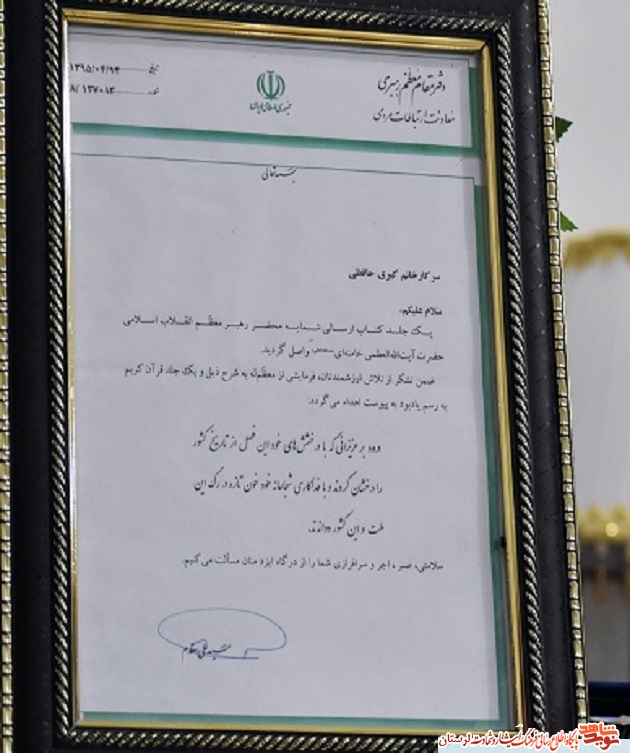 دفتر مقام معظم رهبری
معاونت ارتباطات مردمی
جمهوری اسلامی ایران
تاریخ ۱۳۹۵/۰۴/۹۴
۸/ ۱۳۷۰۱۳
بسمه‌تعالی
سرکار خانم کبری حافظی
سلام علیکم،
یک جلد کتاب ارسالی شما به محضر رهبر معظم انقلاب اسلامی
حضرت آیت‌الله‌العظمی خامنه‌ای واصل گردید.
ضمن تشکر از تلاش ارزشمندتان، فرمایشی از معظم‌له به شرح ذیل و یک جلد قرآن کریم
به رسم یادبود به پیوست اهداء می‌گردد:
درود بر عزیزانی که با درخشش‌های خود این فصل از تاریخ کشور
را درخشان کردند و با فداکاری شجاعانه خود خون تازه در رگ این
ملت و این کشور دواندند.
سلامتی، صبر، اجر و سرافرازی شما را از درگاه ایزد منان مسألت می‌کنیم.